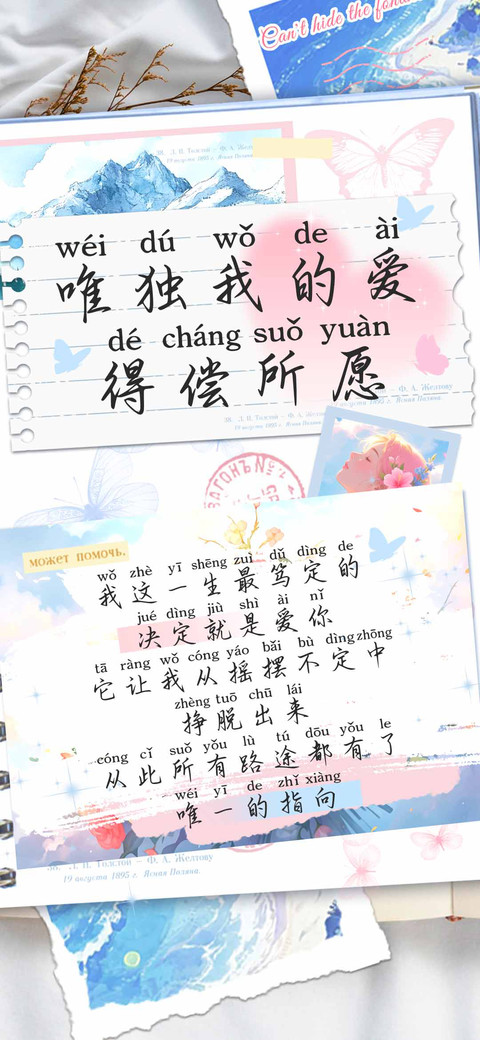 Can't hide the fond
ЗК. Л. Н. Толстой — Ф. А. Желтову
19 августа 1895 г. Ясная Поляна.
wéi dú wǒ de ài
唯独我的爱
dé cháng suǒ yuàn
得偿所愿
Ф. А. Желтову
1895 г. Ясная Поляна.
ЗК. Л. Н. Толстой
19 августа 1895 г. Ясная Поляна.
ВАГОНЪ №
может помочь.
wǒ zhè yī shēng zuì dǔ dìng de
我这一生最笃定的
jué dìng jiù shì ài nǐ
决定就是爱你
tā ràng wǒ cóng yáo bǎi bù dìng zhōng
它让我从摇摆不定中
zhèng tuō chū lái
挣脱出来
cóng cǐ suǒ yǒu lù tú dōu yǒu le
从此所有路途都有了
wéi yī de zhǐ xiàng
唯一的指向
ЗК. Л. Н. Толстой — Ф. А. Желтову
19 августа 1895 г. Ясная Поляна.